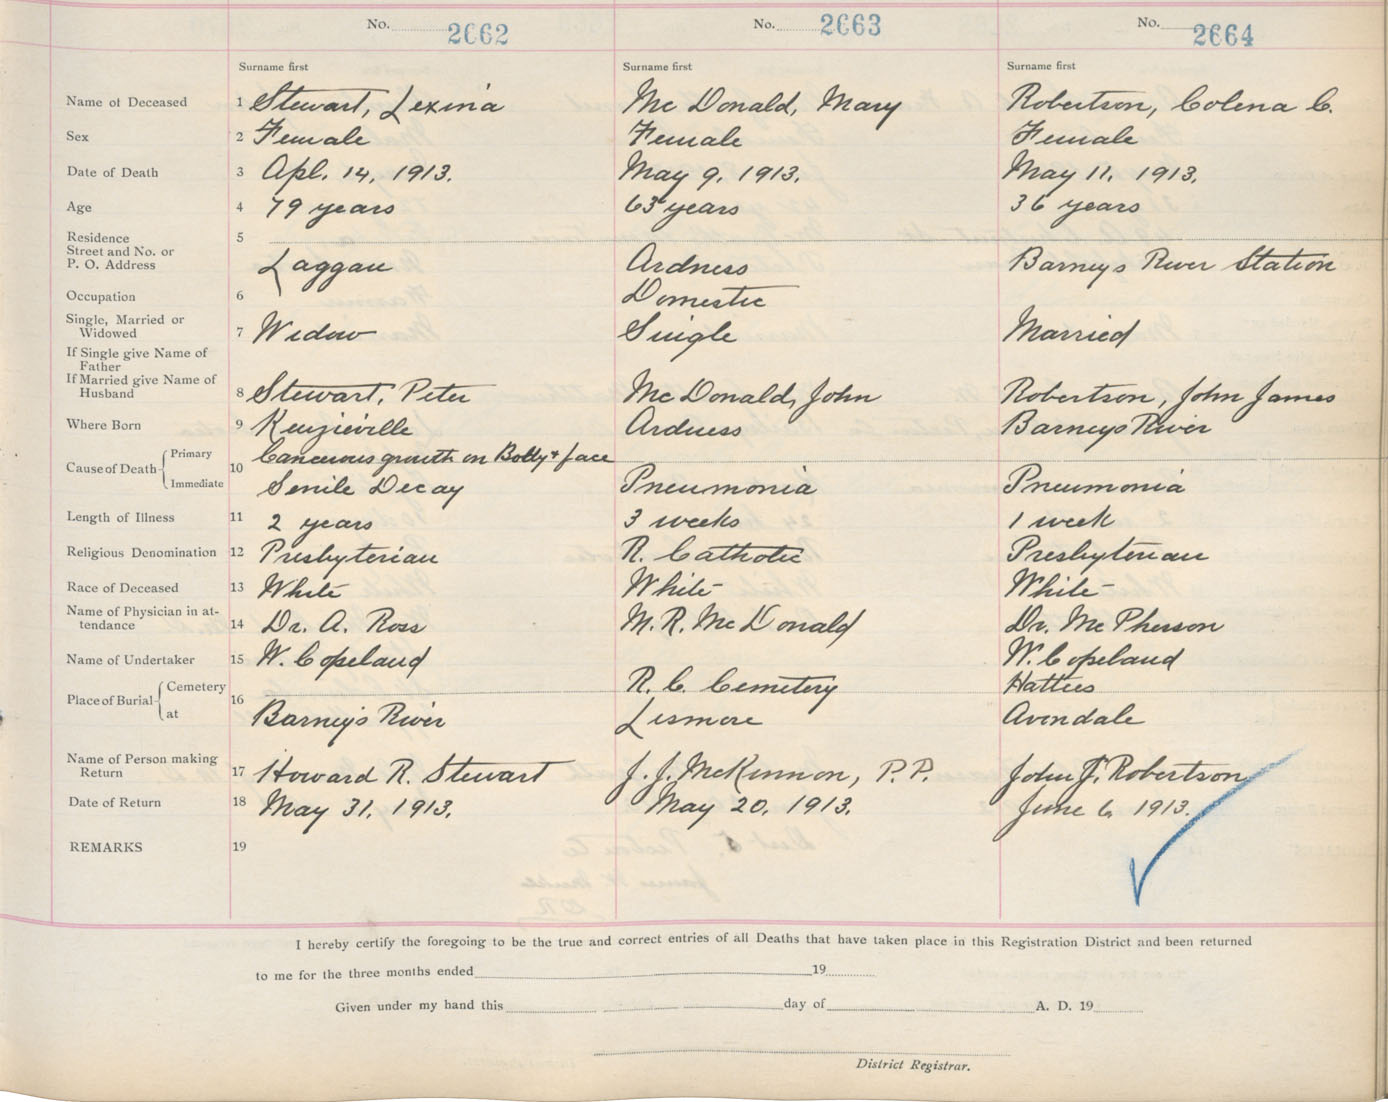 No. 2662 No. 2663 No. 2664
Surname first Surname first Surname first
Name of Deceased 1 Stewart, Lexina Mc Donald, Mary Robertson, Colena C.
Sex 2 Female Female Female
Date of Death 3 Apl. 14, 1913. May 9, 1913. May 11, 1913.
Age 4 79 years 63 years 36 years
Residence 5
Street and No. or
P. O. Address Laggan Ardness Barneys River Station
Occupation 6 Domestic
Single, Married or
Widowed 7 Widow Single Married
If Single give Name of
Father
If Married give Name of
Husband 8 Stewart, Peter Mc Donald, John Robertson, John James
Where Born 9 Kenzieville Ardness Barneys River
Cause of Death Primary 10 Cancerous growth on Body & face
Immediate Senile Decay Pneumonia Pneumonia
Length of Illness 11 2 years 3 weeks 1 week
Religious Denomination 12 Presbyterian R. Catholic Presbyterian
Race of Deceased 13 White White White
Name of Physician in at-
tendance 14 Dr. A. Ross M. R. Mc Donald Dr. Mc Pherson
Name of Undertaker 15 W. Copeland W. Copeland
Place of Burial Cemetery 16 R. C. Cemetery Hatties
at Barney's River Lismore Avondale
Name of Person making
Return 17 Howard R. Stewart J. J. McKinnon, P.P. John J. Robertson
Date of Return 18 May 31, 1913. May 20, 1913. June 6, 1913.
REMARKS 19
I hereby certify the foregoing to be the true and correct entries of all Deaths that have taken place in this Registration District and been returned
to me for the three months ended 19
Given under my hand this day of A. D. 19
District Registrar.